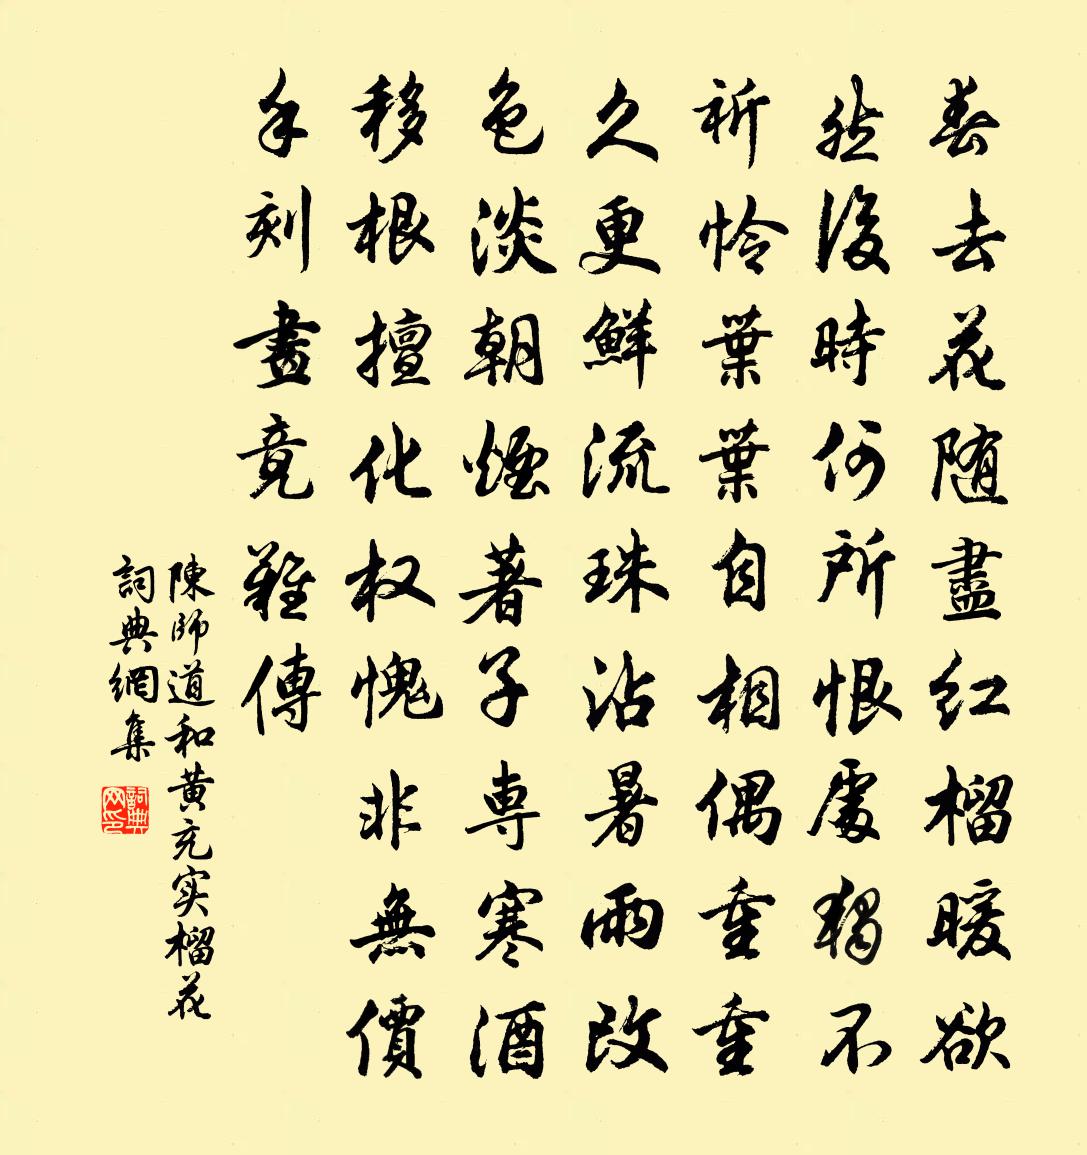 春去花随盡红榴暖欲
然後時何所恨處獨不
祈怜葉葉自相偶重重
久更鮮流珠沾暑雨改
色淡朝煙著子専寒酒
移根擅化权愧非無價
手刻畫竟難傳
陳師道和黄充实榴花
詞典網集
詞典网印